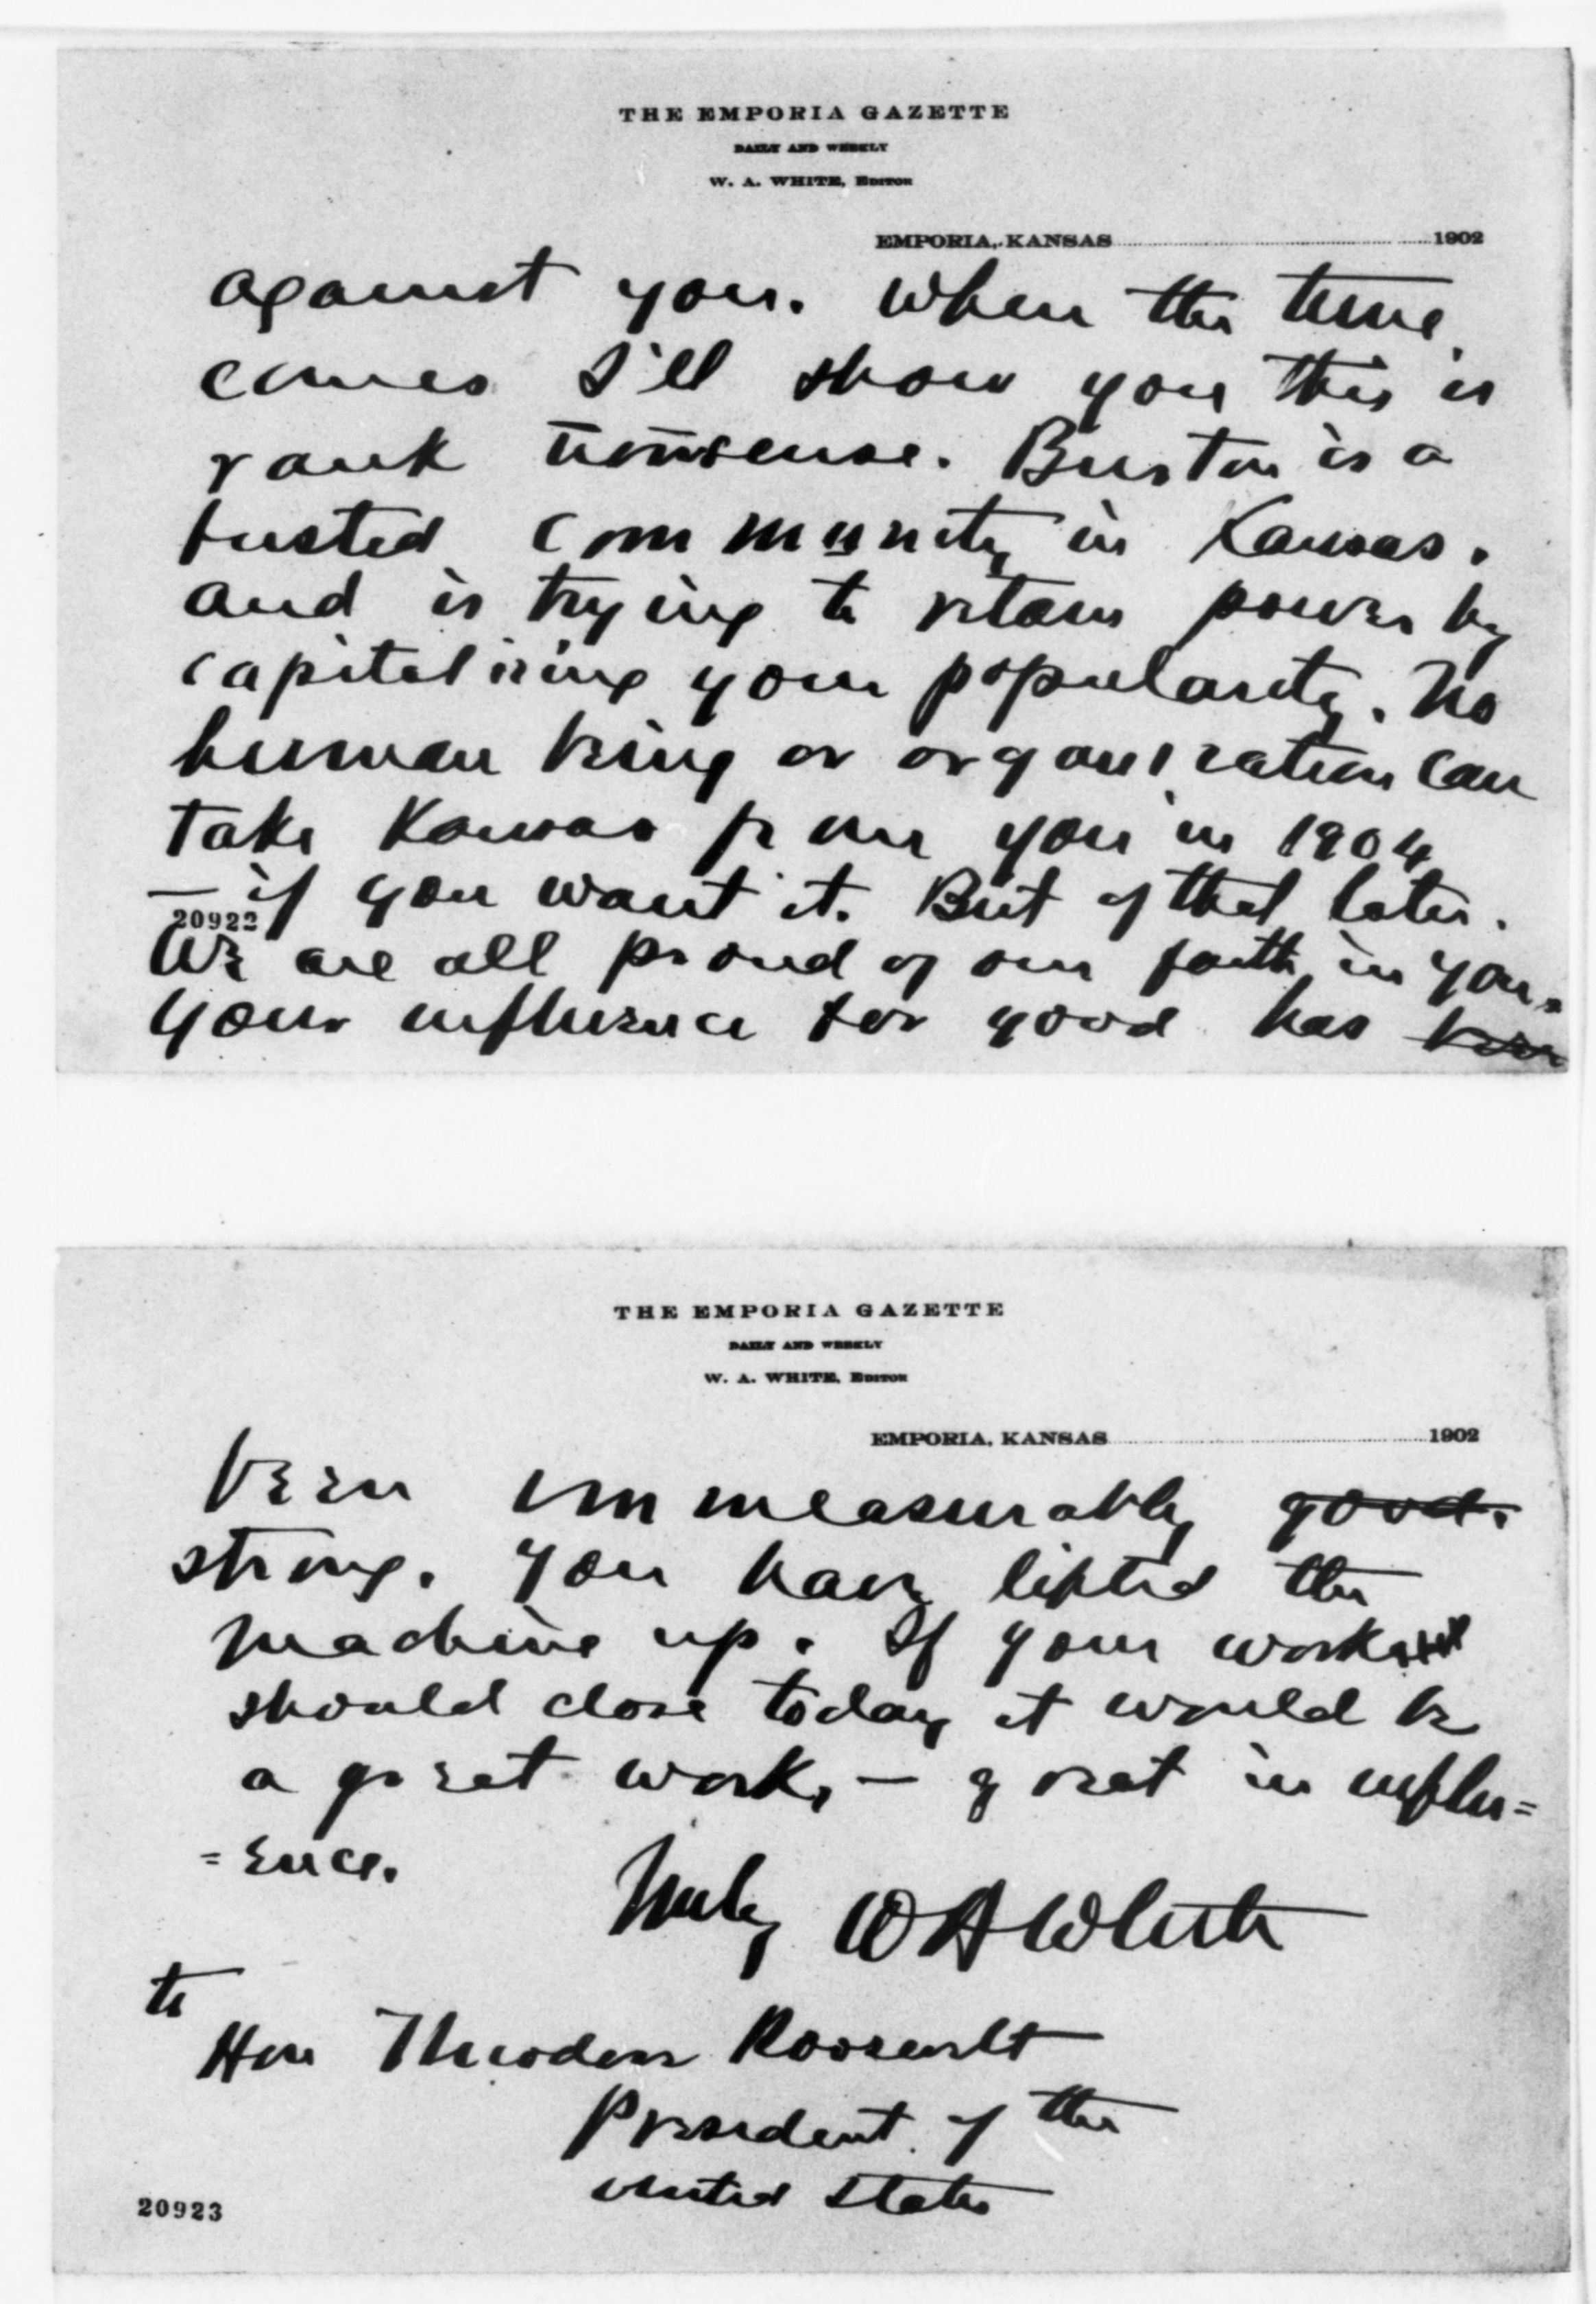 THE EMPORIA GAZETTE
DAILY AND WEEKLY
W. A. WHITE, EDITOR
EMPORIA, KANSAS 1902
against you. When the time
comes I'll show you this is
rank nonsense. Burton is a
busted community in Kansas.
and is trying to retain power by
capitalizing your popularity. No
human being or organization can
take Kansas from you in 1904
— if you want it. But of that later.
20922
We are all proud of our faith in you.
Your influence for good has been
THE EMPORIA GAZETTE
DAILY AND WEEKLY
W. A. WHITE, EDITOR
EMPORIA, KANSAS 1902
been immeasurably good.
strong. You have lifted the
machine up. If your work
should close today it would be
a great work, — great in influ=
=ence.
Truly W A White
to
Hon Theodore Roosevelt
President of the
United States
20923